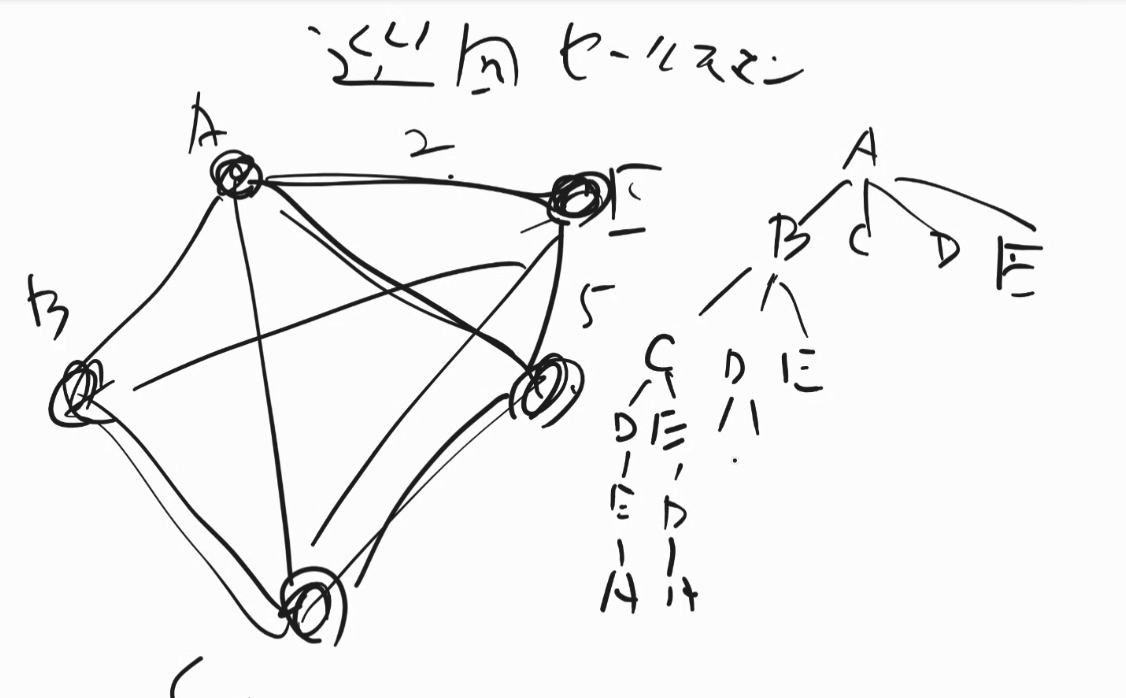 巡回セールスマン
A
2
E
B
5
C
A
B C D E
C D E
D E
E D
A A